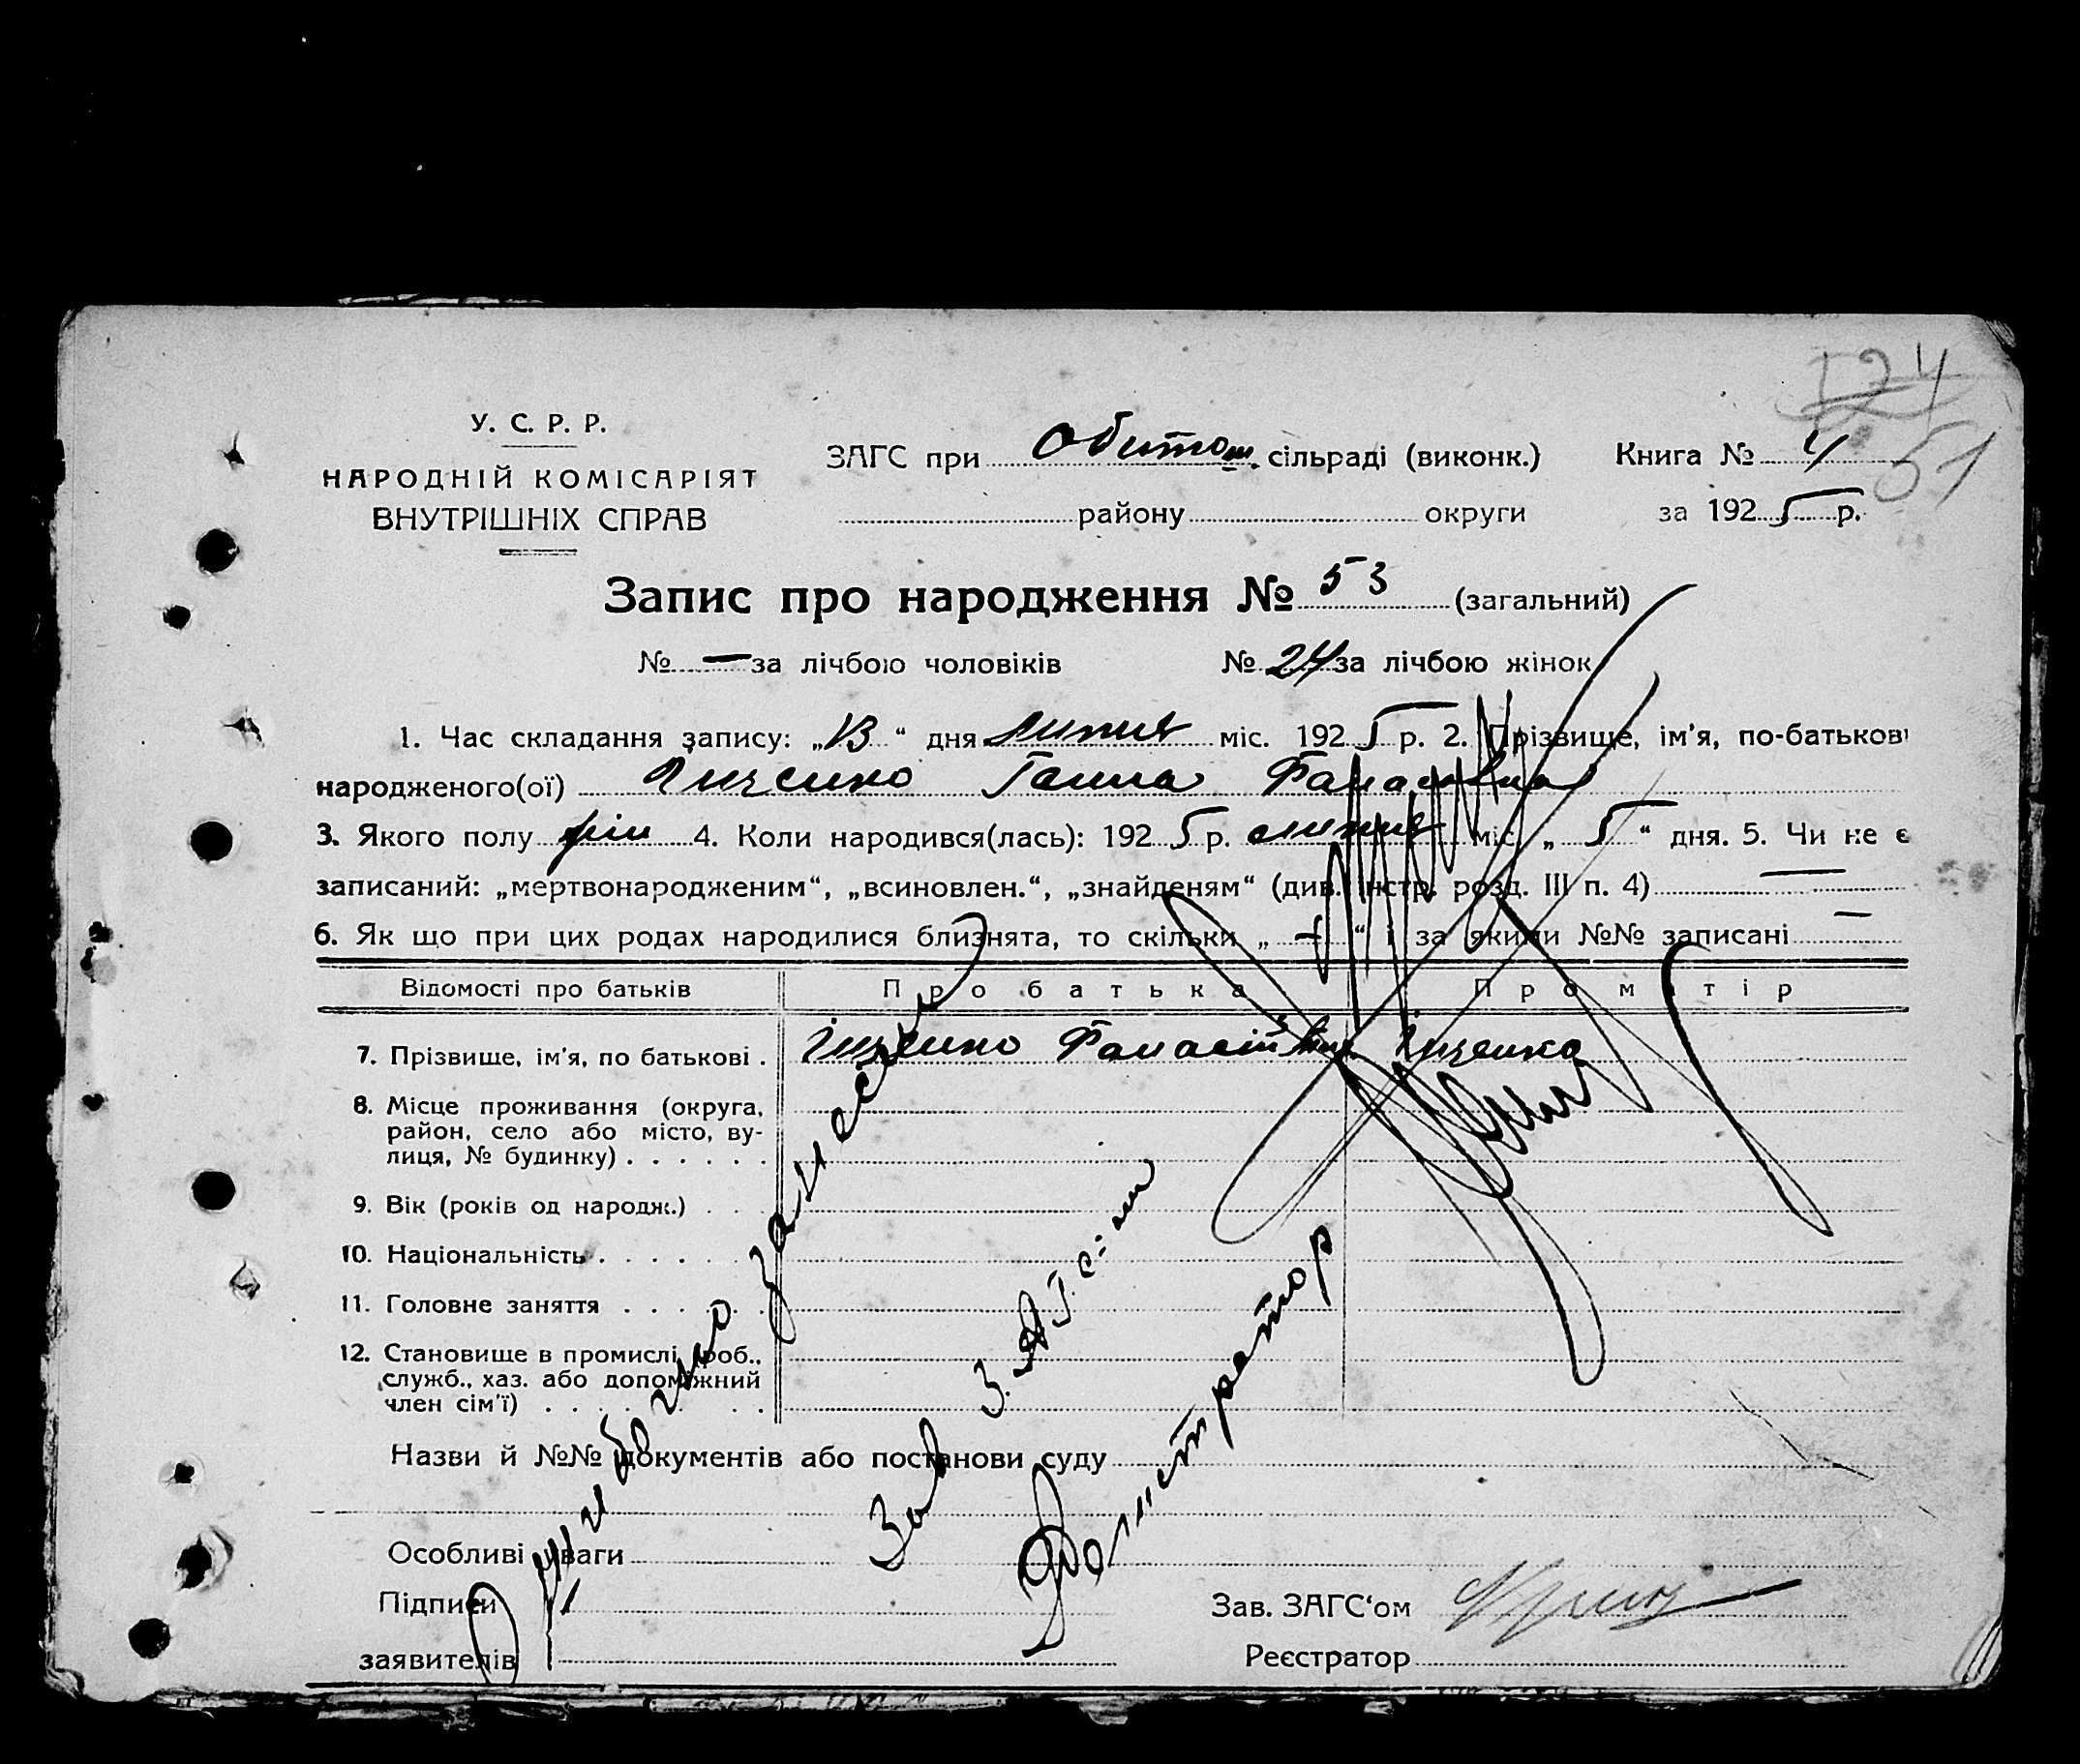 174
51
У. С. Р. Р.
НАРОДНІЙ КОМІСАРІЯТ
ВНУТРІШНІХ СПРАВ
ЗАГС при Обитош. сільраді (виконк.) Книга № 4
району округи за 1925 р.
Запис про народження № 53 (загальний)
№ — за лічбою чоловіків № 24 за лічбою жінок
1. Час складання запису: „13“ дня липня міс. 1925 р. 2. Прізвище, ім'я, по-батькові
народженого(ої) Іщенко Ганна Фанасівна
3. Якого полу жін 4. Коли народився(лась): 1925 р. липня міс. „5“ дня. 5. Чи не є
записаний: „мертвонародженим“, „всиновлен.“, „знайденям“ (див. інстр. розд. III п. 4) —
6. Як що при цих родах народилися близнята, то скільки „—“ і за якими №№ записані —
Відомості про батьків Про батька Про матір
7. Прізвище, ім'я, по батькові . Іщенко Фанасій Іщенко
8. Місце проживання (округа,
район, село або місто, ву-
лиця, № будинку) . . . . . .
9. Вік (років од народж.) . . .
10. Національність . . . . . .
11. Головне заняття . . . . . .
12. Становище в промислі, роб.,
служб., хаз. або допоміжний
член сім'ї) . . . . . . .
Назви й №№ документів або постанови суду
Особливі уваги
Підписи
заявителів
Зав. ЗАГС'ом
Реєстратор
Помилково записаний
Зав З.АГС-ом
Реєстратор